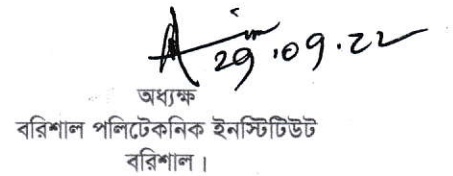 29.09.22
অধ্যক্ষ
বরিশাল পলিটেকনিক ইনস্টিটিউট
বরিশাল।